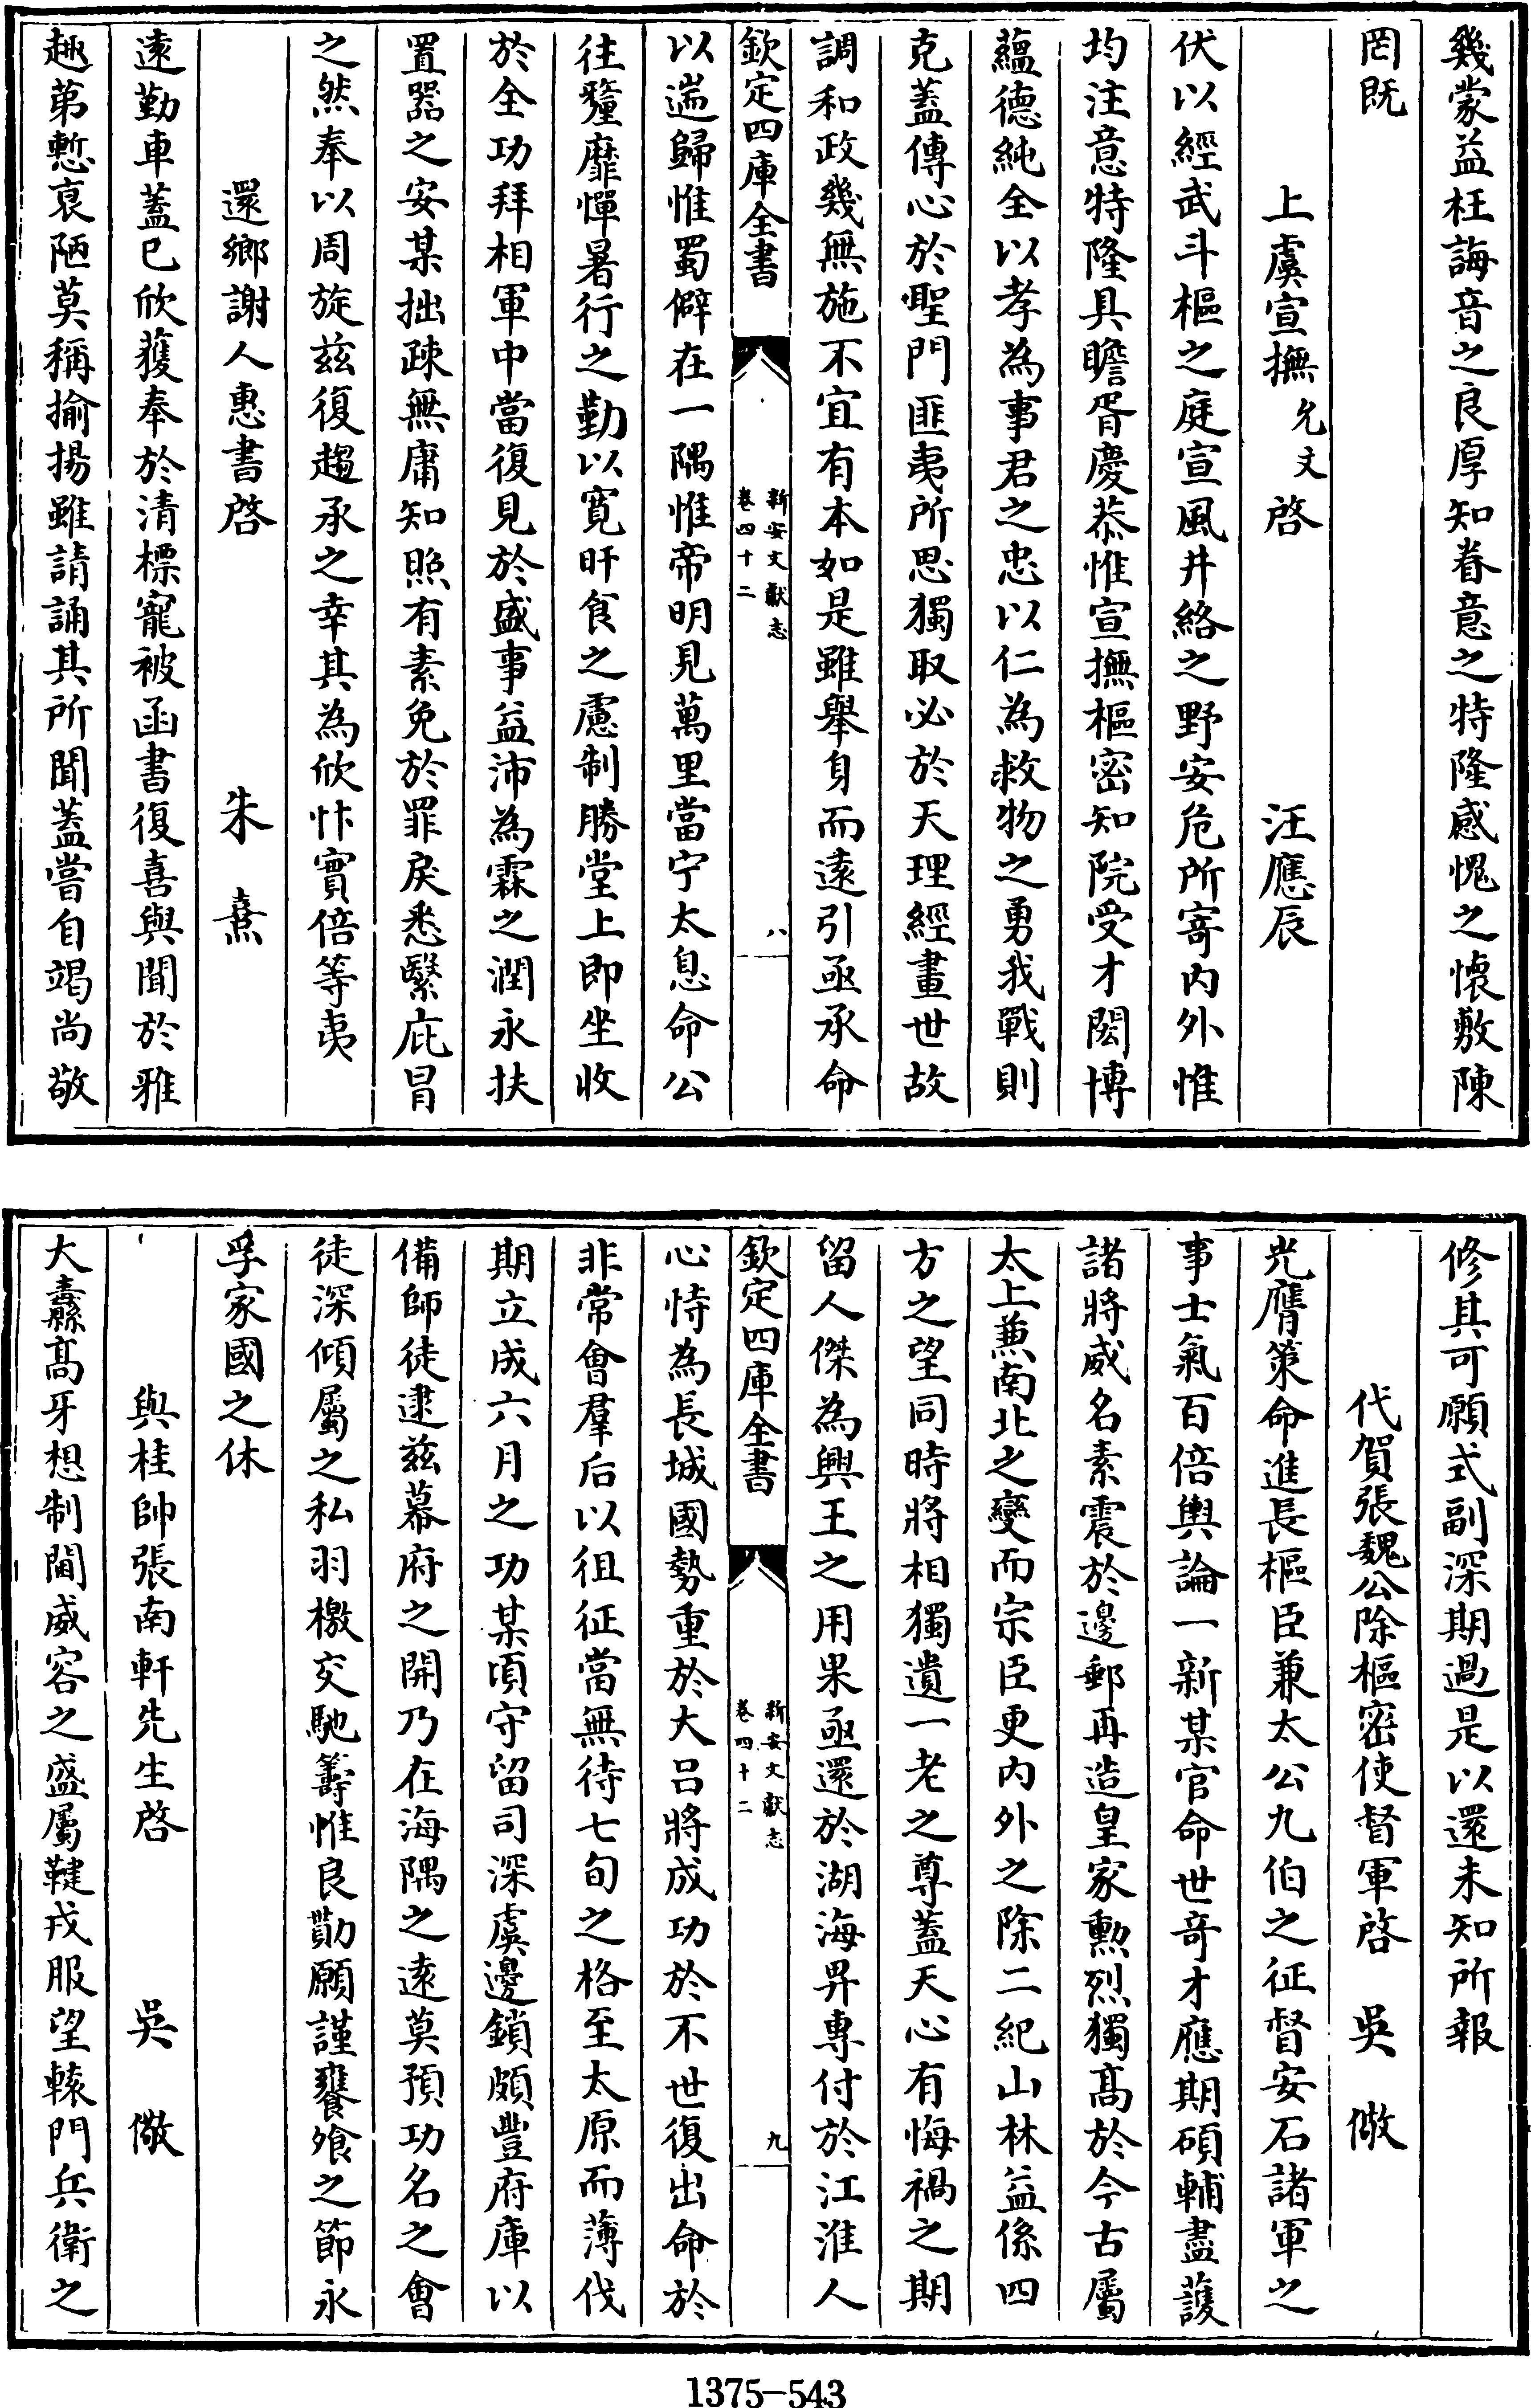 幾蒙益枉誨音之良厚知眷意之特隆感愧之懐敷陳
罔既
上虞宣撫允文啓　汪應辰
伏以經武斗樞之庭宣風井絡之野安危所寄内外惟
均注意特隆具瞻胥慶恭惟宣撫樞密知院受才閎博
蘊徳純全以孝為事君之忠以仁為救物之勇我戰則
克蓋傳心於聖門匪夷所思獨取必於天理經畫世故
調和政幾無施不宜有本如是雖舉身而逺引亟承命
欽定四庫全書　新安文獻志卷四十二　八
以遄歸惟蜀僻在一隅惟帝明見萬里當宁太息命公
往釐靡憚暑行之勤以寛旰食之慮制勝堂上即坐收
於全功拜相軍中當復見於盛事益沛為霖之潤永扶
置器之安某拙疎無庸知照有素免於罪戾悉繄庇冒
之然奉以周旋兹復趨承之幸其為欣忭實倍等夷
還鄉謝人惠書啓　朱熹
逺勤車蓋已欣獲奉於清標寵被函書復喜與聞於雅
趣第慙衰陋莫稱揄揚雖請誦其所聞蓋嘗自竭尚敬
修其可願式副深期過是以還未知所報
代賀張魏公除樞密使督軍啓　吳儆
光膺策命進長樞臣兼太公九伯之征督安石諸軍之
事士氣百倍輿論一新某官命世竒才應期碩輔盡䕶
諸將威名素震於邊郵再造皇家勲烈獨髙於今古屬
太上兼南北之變而宗臣更内外之除二紀山林益係四
方之望同時將相獨遺一老之尊蓋天心有悔禍之期
留人傑為興王之用果亟還於湖海畀專付於江淮人
欽定四庫全書　新安文獻志卷四十二　九
心恃為長城國勢重於大吕將成功於不世復出命於
非常會羣后以徂征當無待七旬之格至太原而薄伐
期立成六月之功某頃守留司深虞邊鎖頗豐府庫以
備師徒逮兹幕府之開乃在海隅之逺莫預功名之會
徒深傾屬之私羽檄交馳籌惟良勩願謹饔飱之節永
孚家國之休
與桂帥張南軒先生啓　吳儆
大纛髙牙想制閫威容之盛屬鞬戎服望轅門兵衛之
1375-543